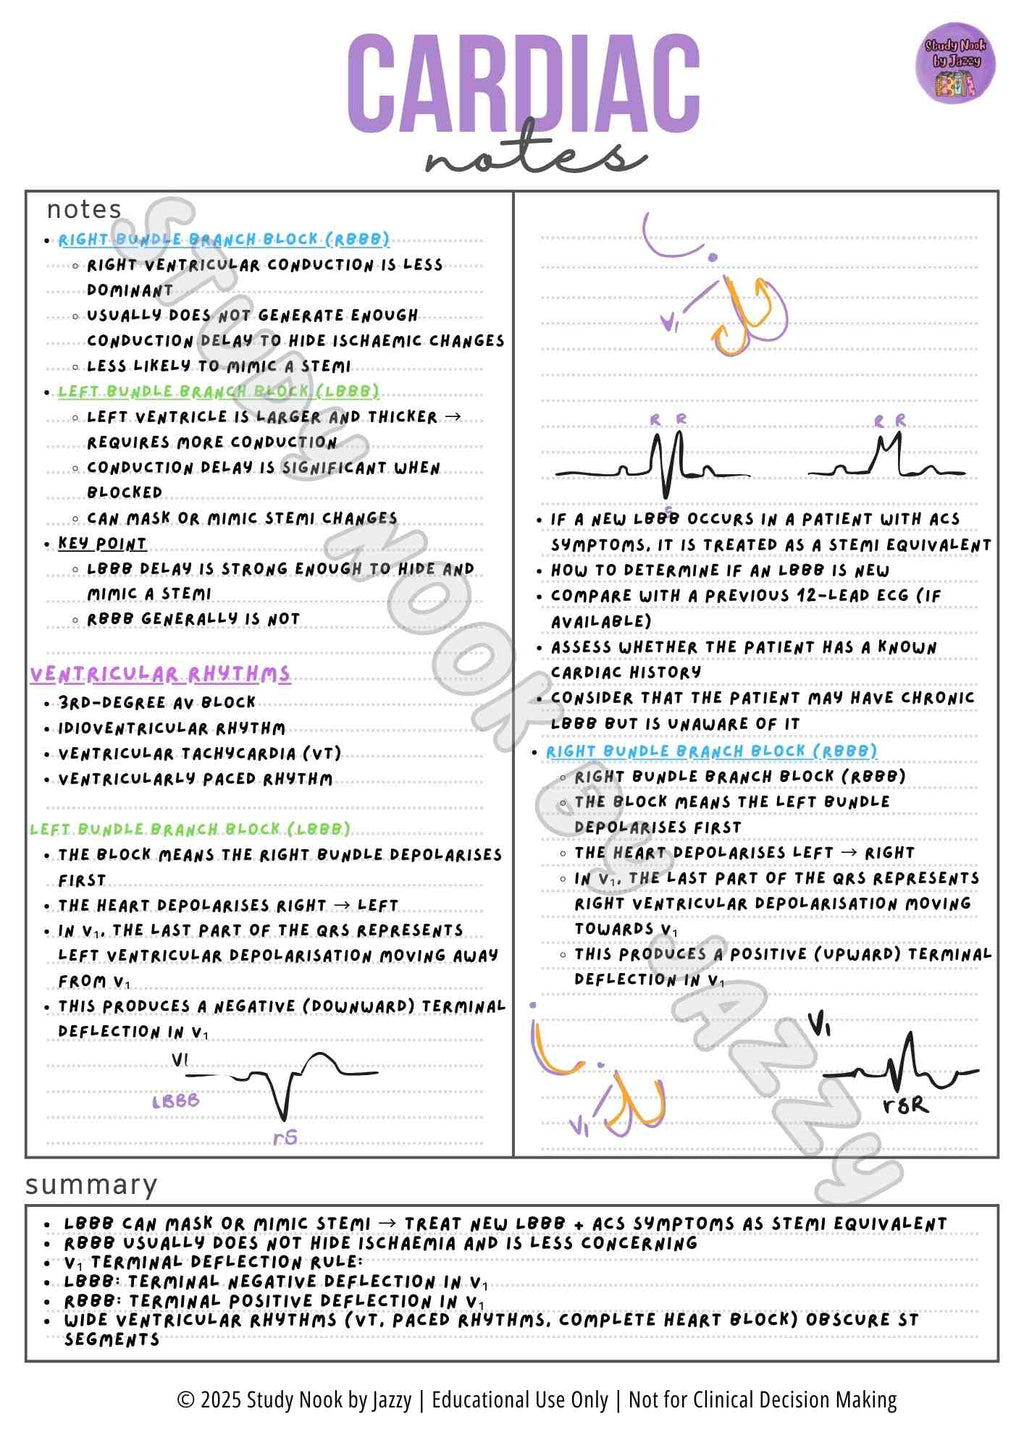 CARDIAC
notes
Study Nook
by Jazzy
notes
• RIGHT BUNDLE BRANCH BLOCK (RBBB)
◦ RIGHT VENTRICULAR CONDUCTION IS LESS
DOMINANT
◦ USUALLY DOES NOT GENERATE ENOUGH
CONDUCTION DELAY TO HIDE ISCHAEMIC CHANGES
◦ LESS LIKELY TO MIMIC A STEMI
• LEFT BUNDLE BRANCH BLOCK (LBBB)
◦ LEFT VENTRICLE IS LARGER AND THICKER →
REQUIRES MORE CONDUCTION
◦ CONDUCTION DELAY IS SIGNIFICANT WHEN
BLOCKED
◦ CAN MASK OR MIMIC STEMI CHANGES
• KEY POINT
◦ LBBB DELAY IS STRONG ENOUGH TO HIDE AND
MIMIC A STEMI
◦ RBBB GENERALLY IS NOT
VENTRICULAR RHYTHMS
• 3RD-DEGREE AV BLOCK
• IDIOVENTRICULAR RHYTHM
• VENTRICULAR TACHYCARDIA (VT)
• VENTRICULARLY PACED RHYTHM
LEFT BUNDLE BRANCH BLOCK (LBBB)
• THE BLOCK MEANS THE RIGHT BUNDLE DEPOLARISES
FIRST
• THE HEART DEPOLARISES RIGHT → LEFT
• IN V₁, THE LAST PART OF THE QRS REPRESENTS
LEFT VENTRICULAR DEPOLARISATION MOVING AWAY
FROM V₁
• THIS PRODUCES A NEGATIVE (DOWNWARD) TERMINAL
DEFLECTION IN V₁
V1
LBBB
rS
V1
R R
R R
S
• IF A NEW LBBB OCCURS IN A PATIENT WITH ACS
SYMPTOMS, IT IS TREATED AS A STEMI EQUIVALENT
• HOW TO DETERMINE IF AN LBBB IS NEW
• COMPARE WITH A PREVIOUS 12-LEAD ECG (IF
AVAILABLE)
• ASSESS WHETHER THE PATIENT HAS A KNOWN
CARDIAC HISTORY
• CONSIDER THAT THE PATIENT MAY HAVE CHRONIC
LBBB BUT IS UNAWARE OF IT
• RIGHT BUNDLE BRANCH BLOCK (RBBB)
◦ RIGHT BUNDLE BRANCH BLOCK (RBBB)
◦ THE BLOCK MEANS THE LEFT BUNDLE
DEPOLARISES FIRST
◦ THE HEART DEPOLARISES LEFT → RIGHT
◦ IN V₁, THE LAST PART OF THE QRS REPRESENTS
RIGHT VENTRICULAR DEPOLARISATION MOVING
TOWARDS V₁
◦ THIS PRODUCES A POSITIVE (UPWARD) TERMINAL
DEFLECTION IN V₁
V1
V1
rSR
STUDY NOOK BY JAZZY
summary
• LBBB CAN MASK OR MIMIC STEMI → TREAT NEW LBBB + ACS SYMPTOMS AS STEMI EQUIVALENT
• RBBB USUALLY DOES NOT HIDE ISCHAEMIA AND IS LESS CONCERNING
• V₁ TERMINAL DEFLECTION RULE:
• LBBB: TERMINAL NEGATIVE DEFLECTION IN V₁
• RBBB: TERMINAL POSITIVE DEFLECTION IN V₁
• WIDE VENTRICULAR RHYTHMS (VT, PACED RHYTHMS, COMPLETE HEART BLOCK) OBSCURE ST
SEGMENTS
© 2025 Study Nook by Jazzy | Educational Use Only | Not for Clinical Decision Making